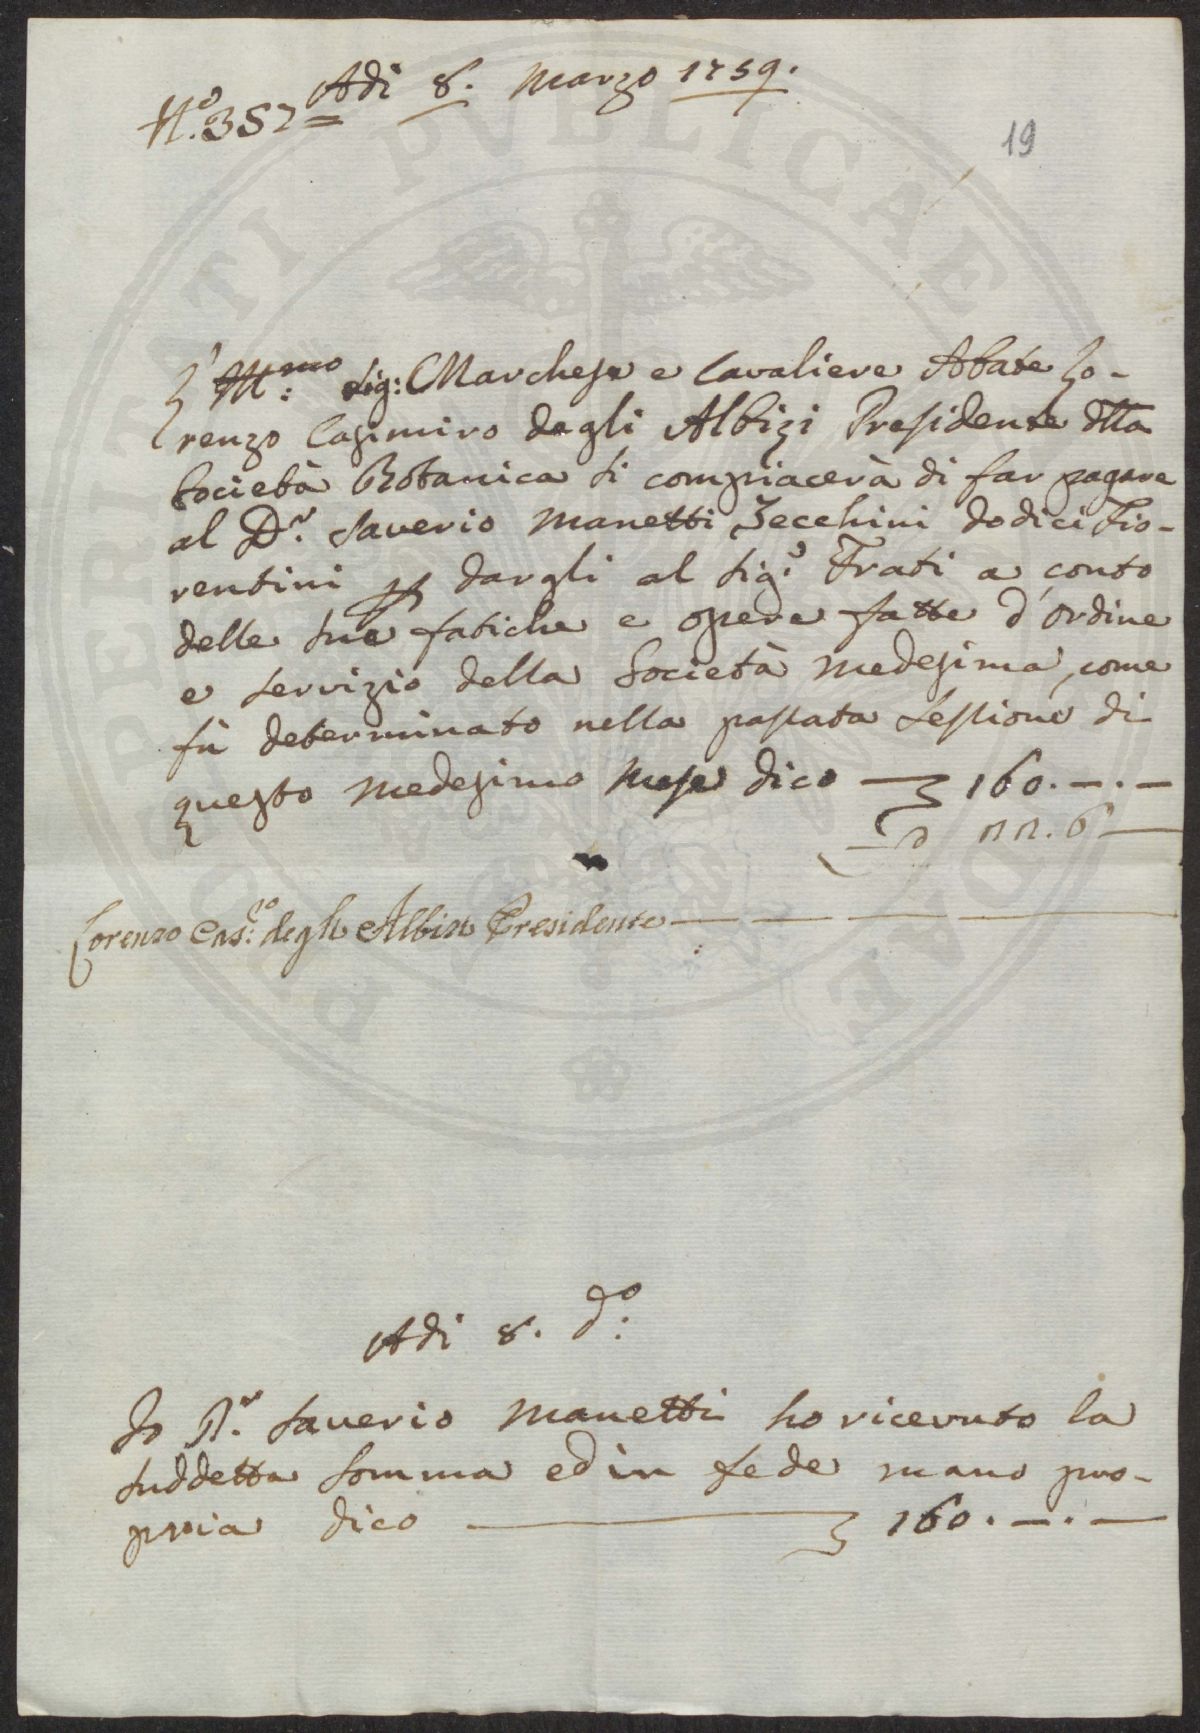 Adi 8. Marzo 1759.
N.º 357
19
L'Ill:mo Sig: Marchese e Cavaliere Abate Lo-
renzo Casimiro degli Albizi Presidente d\ta
Società Botanica si compiacerà di far pagare
al D.r Saverio Manetti Zecchini dodici Fio-
rentini p dargli al Sig.r Frati a conto
delle sue fatiche e opere fatte d'ordine
e servizio della Società medesima, come
fù determinato nella passata sessione di
questo medesimo mese dico 160.—.—
Lorenzo Cas:ro degli Albizi Presidente
Adi 8. d.o
Io D.r Saverio Manetti ho ricevuto la
suddetta somma ed in fede mano pro-
pria dico 160.—.—
PROSPERITATI PVBLICAE